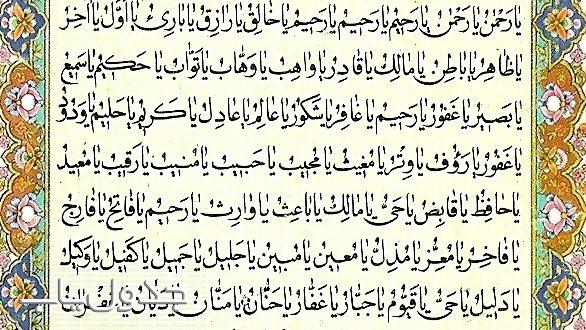 يا رَحْمٰنُ يا رَحْمٰنُ يا رَحيمُ يا رَحيمُ يا رَحيمُ يا خالِقُ يا رازِقُ يا بارِئُ يا اَوَّلُ يا اخِرُ
يا ظاهِرُ يا باطِنُ يا مالِكُ يا قادِرُ يا واهِبُ يا وَهّابُ يا تَوّابُ يا حَكيمُ يا سَميعُ
يا بَصيرُ يا غَفُورُ يا رَحيمُ يا غافِرُ يا شَكُورُ يا عالِمُ يا عادِلُ يا كَريمُ يا حَليمُ يا وَدُودُ
يا غَفُورُ يا رَؤُفُ يا وِتْرُ يا مُغيثُ يا مُجيبُ يا حَبيبُ يا مُنيبُ يا رَقيبُ يا مُعيدُ
يا حافِظُ يا قابِضُ يا حَىُّ يا مالِكُ يا باعِثُ يا وارِثُ يا رَحيمُ يا فاتِحُ يا فارِجُ
يا فاخِرُ يا مُعِزُّ يا مُذِلُّ يا مُعينُ يا مُبينُ يا جَليلُ يا جَميلُ يا كَفيلُ يا وَكيلُ
يا دَليلُ يا حَىُّ يا قَيُّومُ يا جَبّارُ يا غَفّارُ يا حَنّانُ يا مَنّانُ
جدول یاب